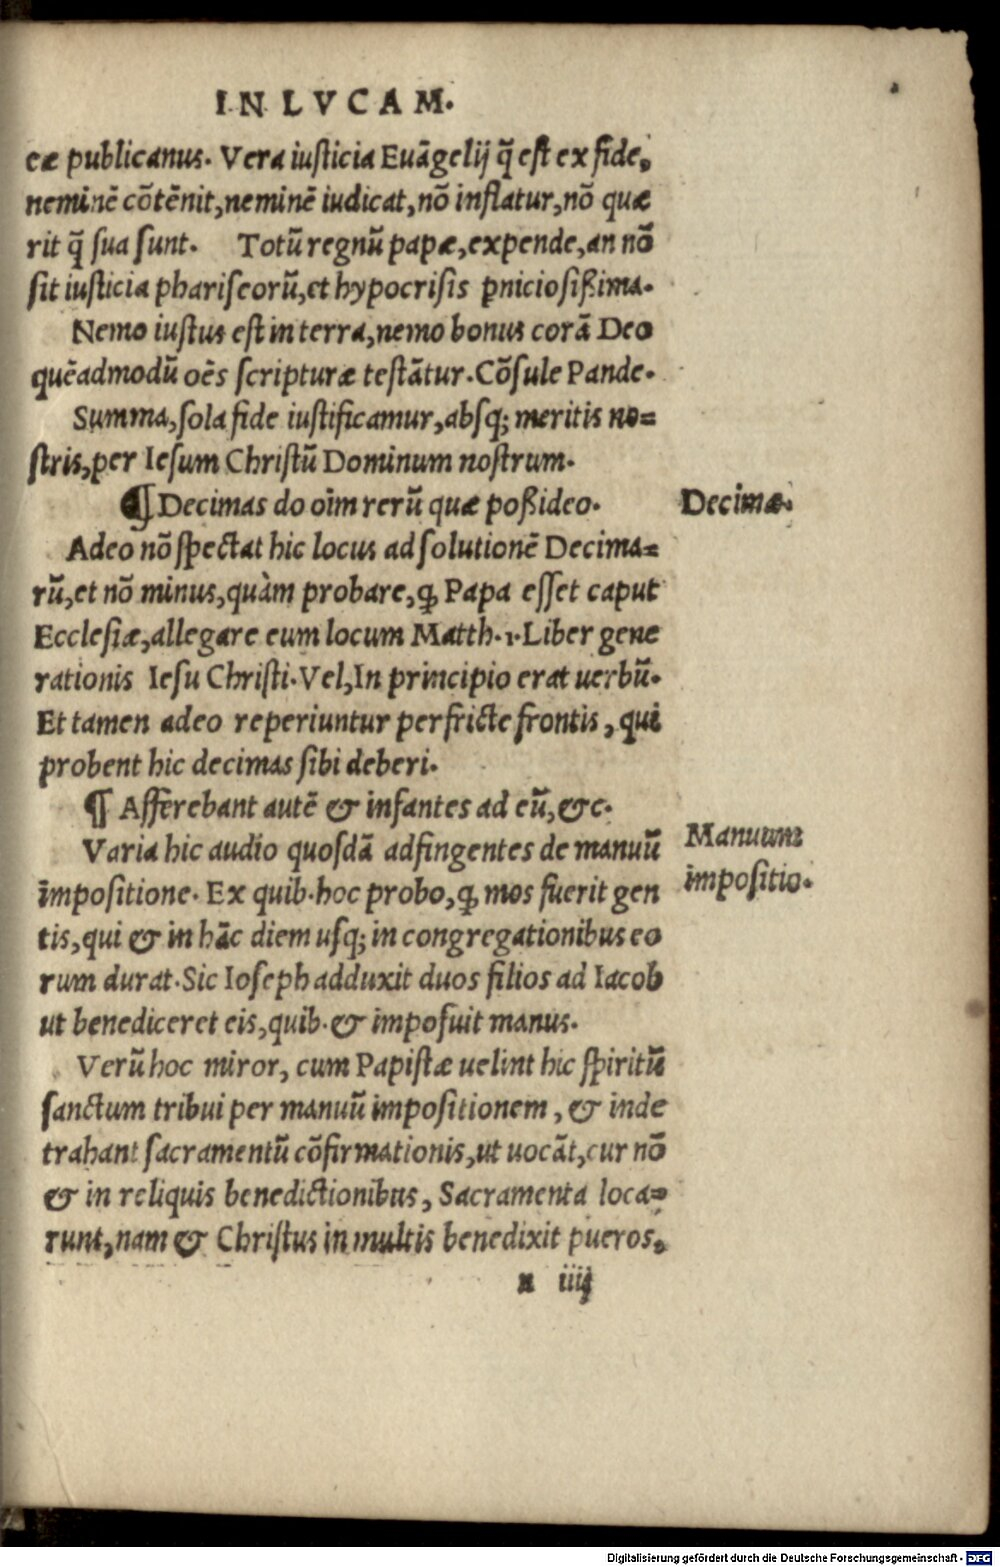 IN LVCAM.
eæ publicanus. Vera iusticia Euāgelij q̄ est ex fide,
neminē cōtēnit, neminē iudicat, nō inflatur, nō quæ
rit q̄ sua sunt. Totū regnū papæ, expende, an nō
sit iusticia phariseorū, et hypocrisis ꝑniciosißima.
Nemo iustus est in terra, nemo bonus corā Deo
quēadmodū oēs scripturæ testātur. Cōsule Pande.
Summa, sola fide iustificamur, absq; meritis no=
stris, per Iesum Christū Dominum nostrum.
¶ Decimas do oīm rerū quæ poßideo.
Decimæ.
Adeo nō spectat hic locus ad solutionē Decima=
rū, et nō minus, quàm probare, ꝙ Papa esset caput
Ecclesiæ, allegare eum locum Matth. 1. Liber gene
rationis Iesu Christi. Vel, In principio erat uerbū.
Et tamen adeo reperiuntur perfricte frontis, qui
probent hic decimas sibi deberi.
¶ Afferebant autē & infantes ad eū, &c.
Varia hic audio quosdā adfingentes de manuū
Manuum
impositione. Ex quib. hoc probo, ꝙ mos fuerit gen
impositio.
tis, qui & in hāc diem usq; in congregationibus eo
rum durat. Sic Ioseph adduxit duos filios ad Iacob
ut benediceret eis, quib. & imposuit manus.
Verū hoc miror, cum Papistæ uelint hic spiritū
sanctum tribui per manuū impositionem, & inde
trahant sacramentū cōfirmationis, ut uocāt, cur nō
& in reliquis benedictionibus, Sacramenta loca=
runt, nam & Christus in multis benedixit pueros,
n iiij
Digitalisierung gefördert durch die Deutsche Forschungsgemeinschaft - DFG